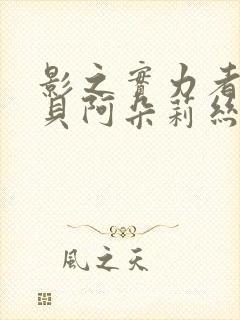 影之實力者
貝阿朵莉絲
風之天